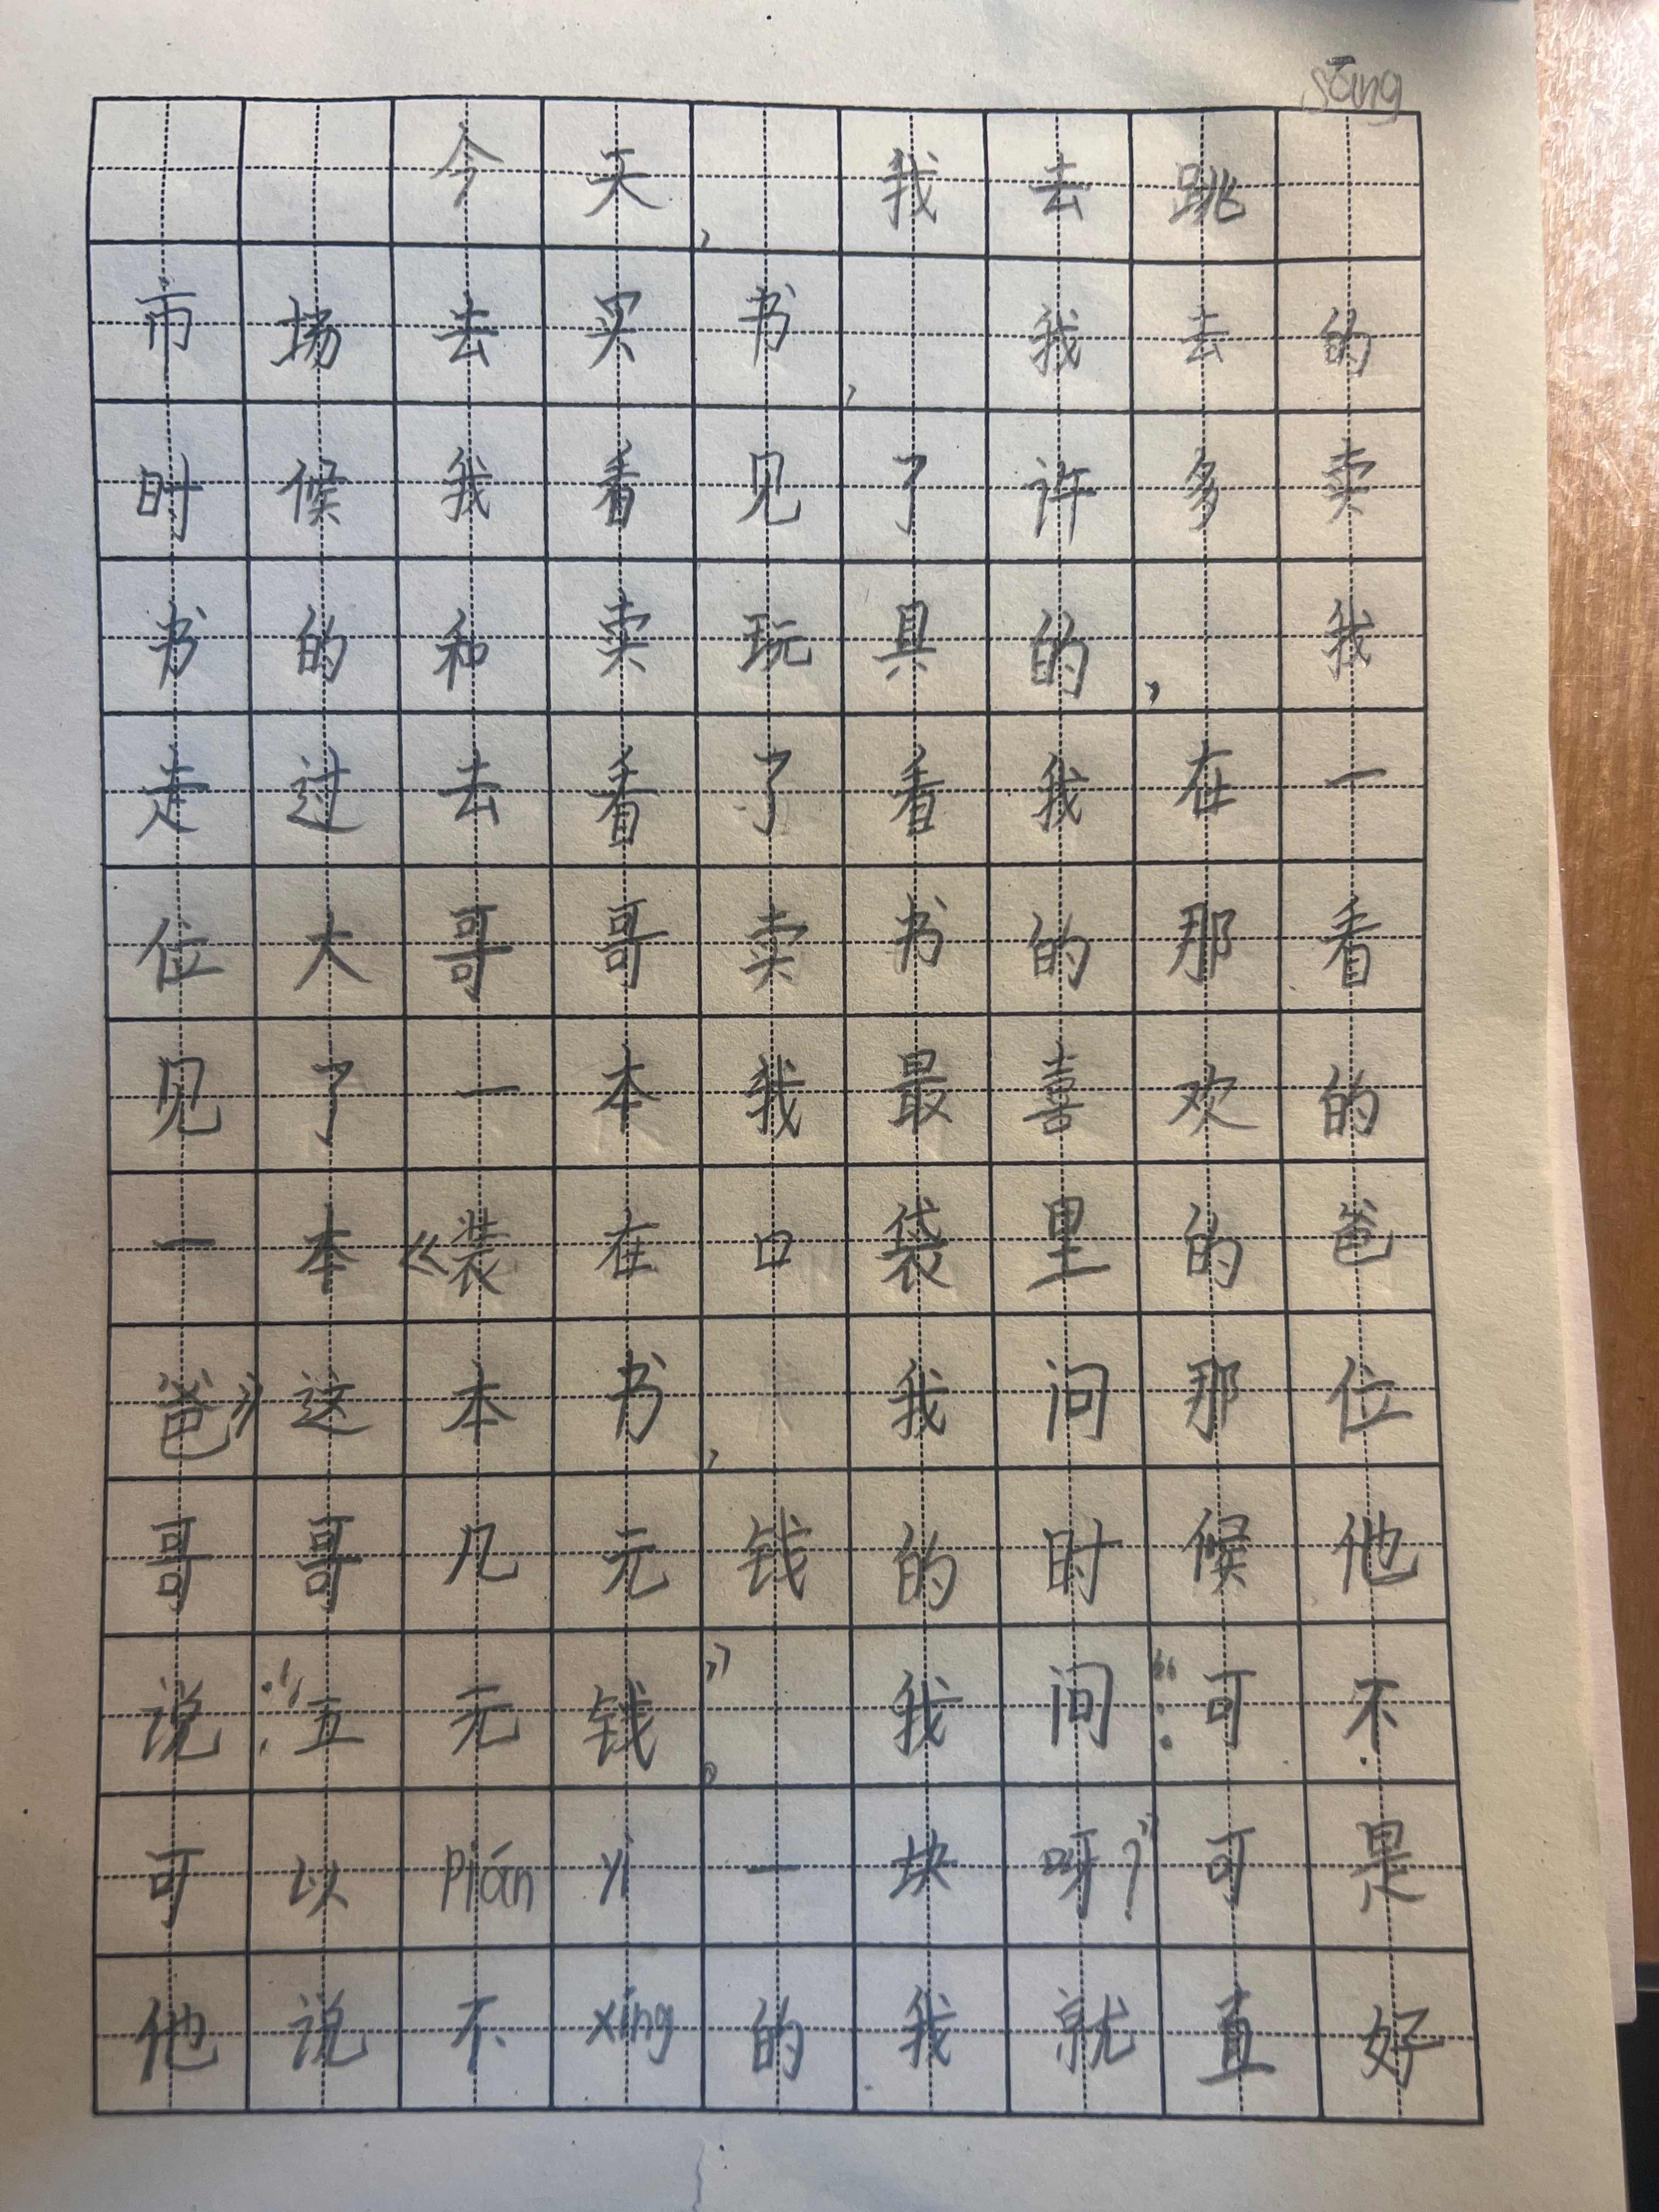 sāng
今天,我去跳
市场去买书,我去的
时候我看见了许多卖
书的和卖玩具的,我
走过去看了看我在一
位大哥哥卖书的那看
见了一本我最喜欢的
一本《装在口袋里的爸
爸》这本书,我问那位
哥哥几元钱的时候他
说:“五元钱”。我问:“可不
可以pián yi一块呀?”可是
他说不xíng的我就直好